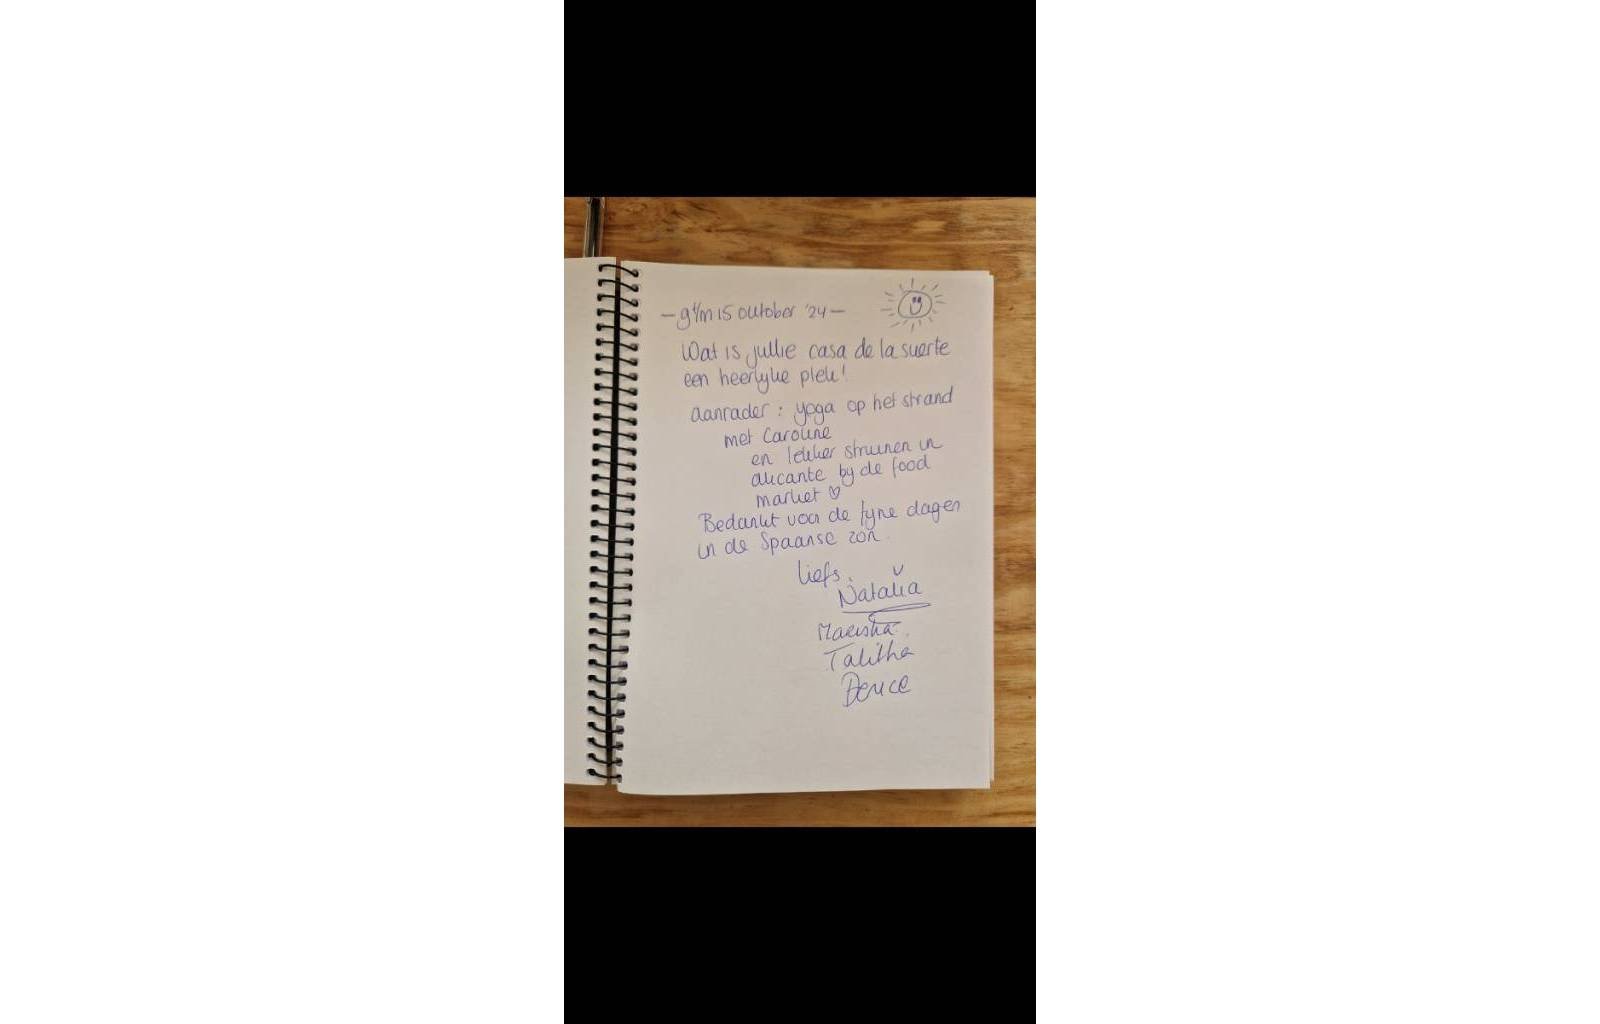 - 9 t/m 15 october '24 -
Wat is jullie casa de la suerte
een heerlyke plek!
aanrader : yoga op het strand
met Caroline
en lekker struinen in
alicante by de food
market ♡
Bedankt voor de fyne dagen
in de Spaanse zon.
liefs,
Natalia
Talitha